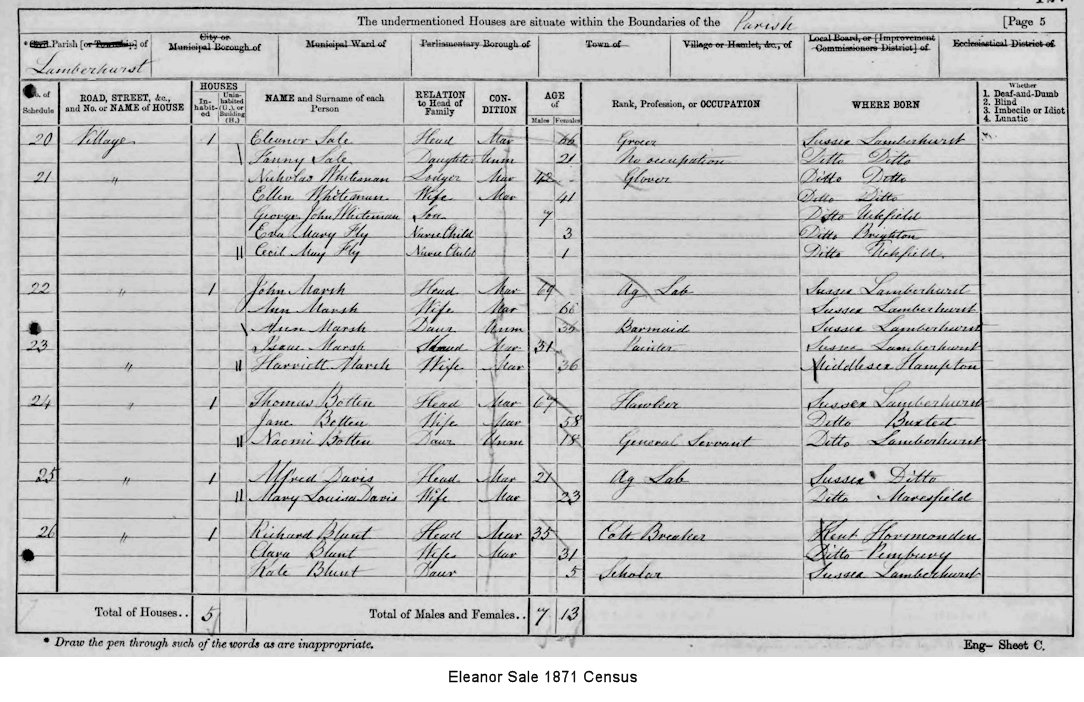 The undermentioned Houses are situate within the Boundaries of the Parish [Page 5
* Civil Parish [or Township] of City or Municipal Borough of Municipal Ward of Parliamentary Borough of Town of Village or Hamlet, &c., of Local Board, or [Improvement Commissioners District] of Ecclesiastical District of
Lamberhurst
No. of Schedule ROAD, STREET, &c., and No. or NAME of HOUSE HOUSES Inhabit-ed Unin-habited (U.), or Building (B.) NAME and Surname of each Person RELATION to Head of Family CON-DITION AGE of Males Females Rank, Profession, or OCCUPATION WHERE BORN Whether 1. Deaf-and-Dumb 2. Blind 3. Imbecile or Idiot 4. Lunatic
20 Village 1 Eleanor Sale Head Mar 66 Grocer Sussex Lamberhurst
Fanny Sale Daughter Unm 21 No occupation Ditto Ditto
21 " Nicholas Whiteman Lodger Mar 42 Glover Ditto Ditto
Ellen Whiteman Wife Mar 41 Ditto Ditto
George John Whiteman Son 7 Ditto Uckfield
Eva Mary Fly Nurse Child 3 Ditto Brighton
Cecil May Fly Nurse Child 1 Ditto Uckfield
22 " 1 John Marsh Head Mar 69 Ag Lab Sussex Lamberhurst
Ann Marsh Wife Mar 66 Sussex Lamberhurst
Ann Marsh Daur Unm Barmaid Sussex Lamberhurst
23 Isaac Marsh Mar 31 Painter Sussex Lamberhurst
" Harriett Marsh Wife Mar 36 Middlesex Hampton
24 " 1 Thomas Botten Head Mar 67 Hawker Sussex Lamberhurst
Jane Botten Wife Mar 58 Ditto Buxted
Naomi Botten Daur Unm 18 General Servant Ditto Lamberhurst
25 " 1 Alfred Davis Head Mar 21 Ag Lab Sussex Ditto
Mary Louisa Davis Wife Mar 23 Ditto Maresfield
26 " 1 Richard Blunt Head Mar 35 Colt Breaker Kent Horsmonden
Clara Blunt Wife Mar 31 Ditto Pembury
Kate Blunt Daur 5 Scholar Sussex Lamberhurst
Total of Houses.. 5 Total of Males and Females.. 7 13
* Draw the pen through such of the words as are inappropriate. Eng- Sheet C.
Eleanor Sale 1871 Census